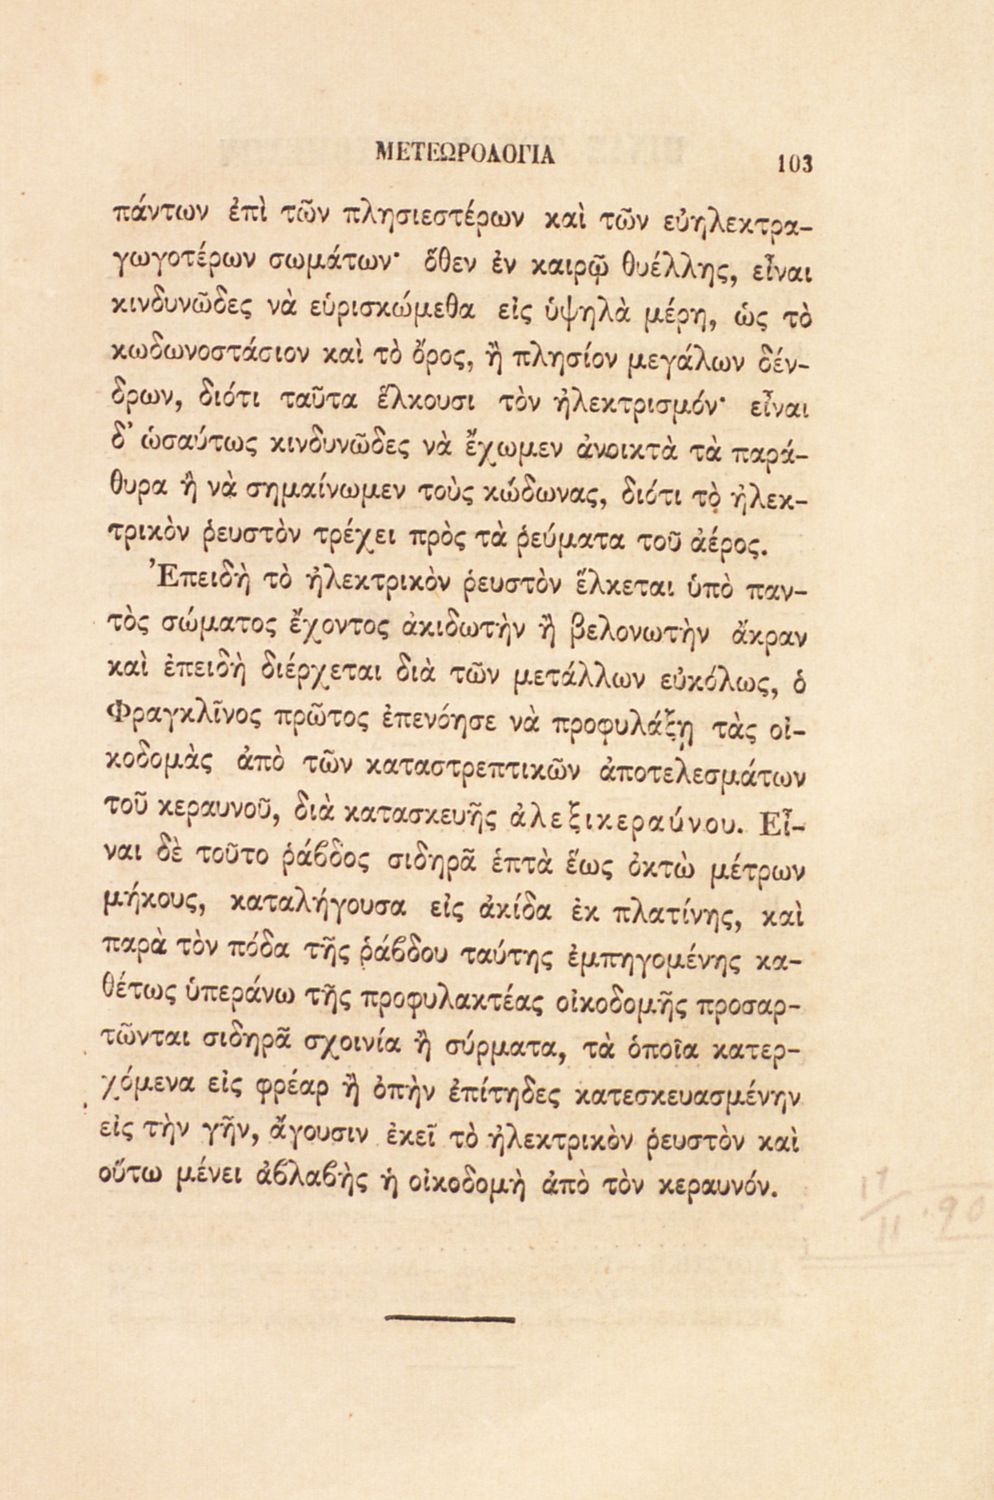 ΜΕΤΕΩΡΟΛΟΓΙΑ 103
πάντων ἐπὶ τῶν πλησιεστέρων καὶ τῶν εὐηλεκτρα-
γωγοτέρων σωμάτων· ὅθεν ἐν καιρῷ θυέλλης, εἶναι
κινδυνῶδες νὰ εὑρισκώμεθα εἰς ὑψηλὰ μέρη, ὡς τὸ
κωδωνοστάσιον καὶ τὸ ὄρος, ἢ πλησίον μεγάλων δέν-
δρων, διότι ταῦτα ἕλκουσι τὸν ἠλεκτρισμόν· εἶναι
δ’ ὡσαύτως κινδυνῶδες νὰ ἔχωμεν ἀνοικτὰ τὰ παρά-
θυρα ἢ νὰ σημαίνωμεν τοὺς κώδωνας, διότι τὸ ἠλεκ-
τρικὸν ῥευστὸν τρέχει πρὸς τὰ ῥεύματα τοῦ ἀέρος.
Ἐπειδὴ τὸ ἠλεκτρικὸν ῥευστὸν ἕλκεται ὑπὸ παν-
τὸς σώματος ἔχοντος ἀκιδωτὴν ἢ βελονωτὴν ἄκραν
καὶ ἐπειδὴ διέρχεται διὰ τῶν μετάλλων εὐκόλως, ὁ
Φραγκλῖνος πρῶτος ἐπενόησε νὰ προφυλάξῃ τὰς οἰ-
κοδομὰς ἀπὸ τῶν καταστρεπτικῶν ἀποτελεσμάτων
τοῦ κεραυνοῦ, διὰ κατασκευῆς ἀλεξικεραύνου. Εἶ-
ναι δὲ τοῦτο ῥάβδος σιδηρᾶ ἑπτὰ ἕως ὀκτὼ μέτρων
μήκους, καταλήγουσα εἰς ἀκίδα ἐκ πλατίνης, καὶ
παρὰ τὸν πόδα τῆς ῥάβδου ταύτης ἐμπηγομένης κα-
θέτως ὑπεράνω τῆς προφυλακτέας οἰκοδομῆς προσαρ-
τῶνται σιδηρᾶ σχοινία ἢ σύρματα, τὰ ὁποῖα κατερ-
χόμενα εἰς φρέαρ ἢ ὀπὴν ἐπίτηδες κατεσκευασμένην
εἰς τὴν γῆν, ἄγουσιν ἐκεῖ τὸ ἠλεκτρικὸν ῥευστὸν καὶ
οὕτω μένει ἀβλαβὴς ἡ οἰκοδομὴ ἀπὸ τὸν κεραυνόν.
17/11.90